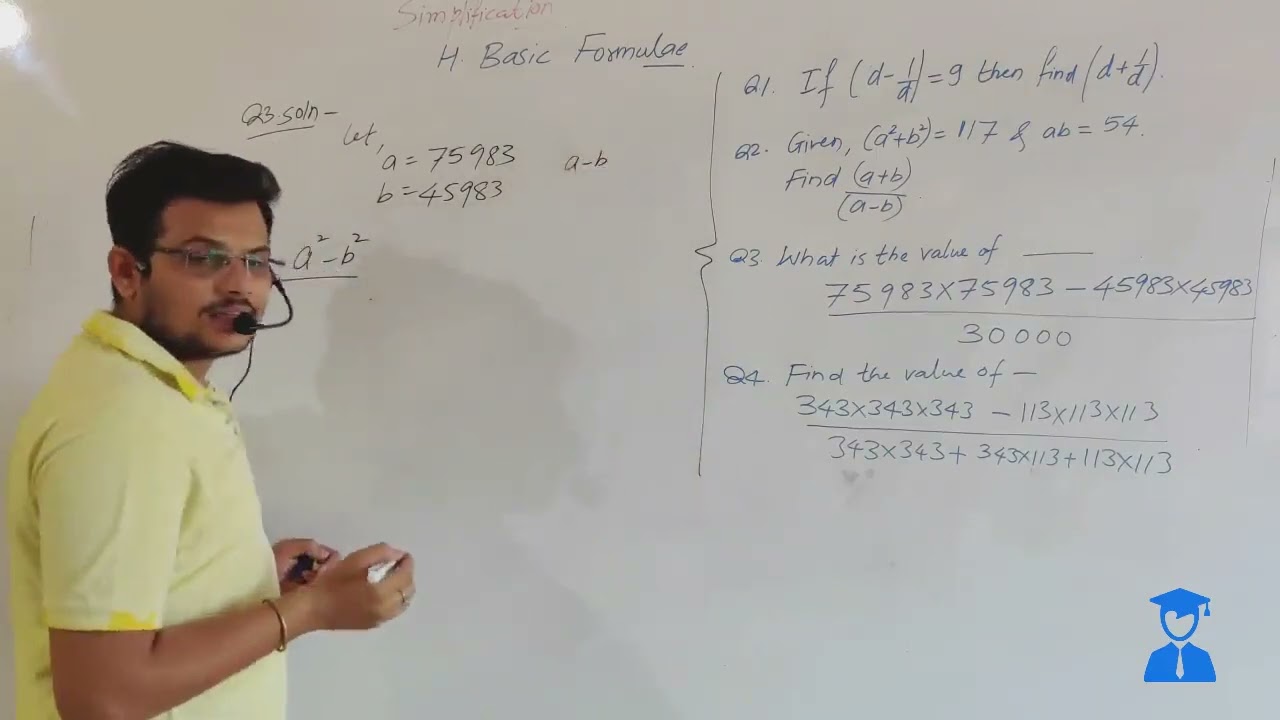 Simplification
H. Basic Formulae.
Q3. soln –
Let,
a = 75983 a-b
b = 45983
a² - b²
Q1. If (d - 1/d) = 9 then find (d + 1/d).
Q2. Given, (a²+b²) = 117 & ab = 54.
Find (a+b)
(a-b)
Q3. What is the value of ____
75983×75983 – 45983×45983
30000
Q4. Find the value of –
343×343×343 – 113×113×113
343×343 + 343×113 + 113×113